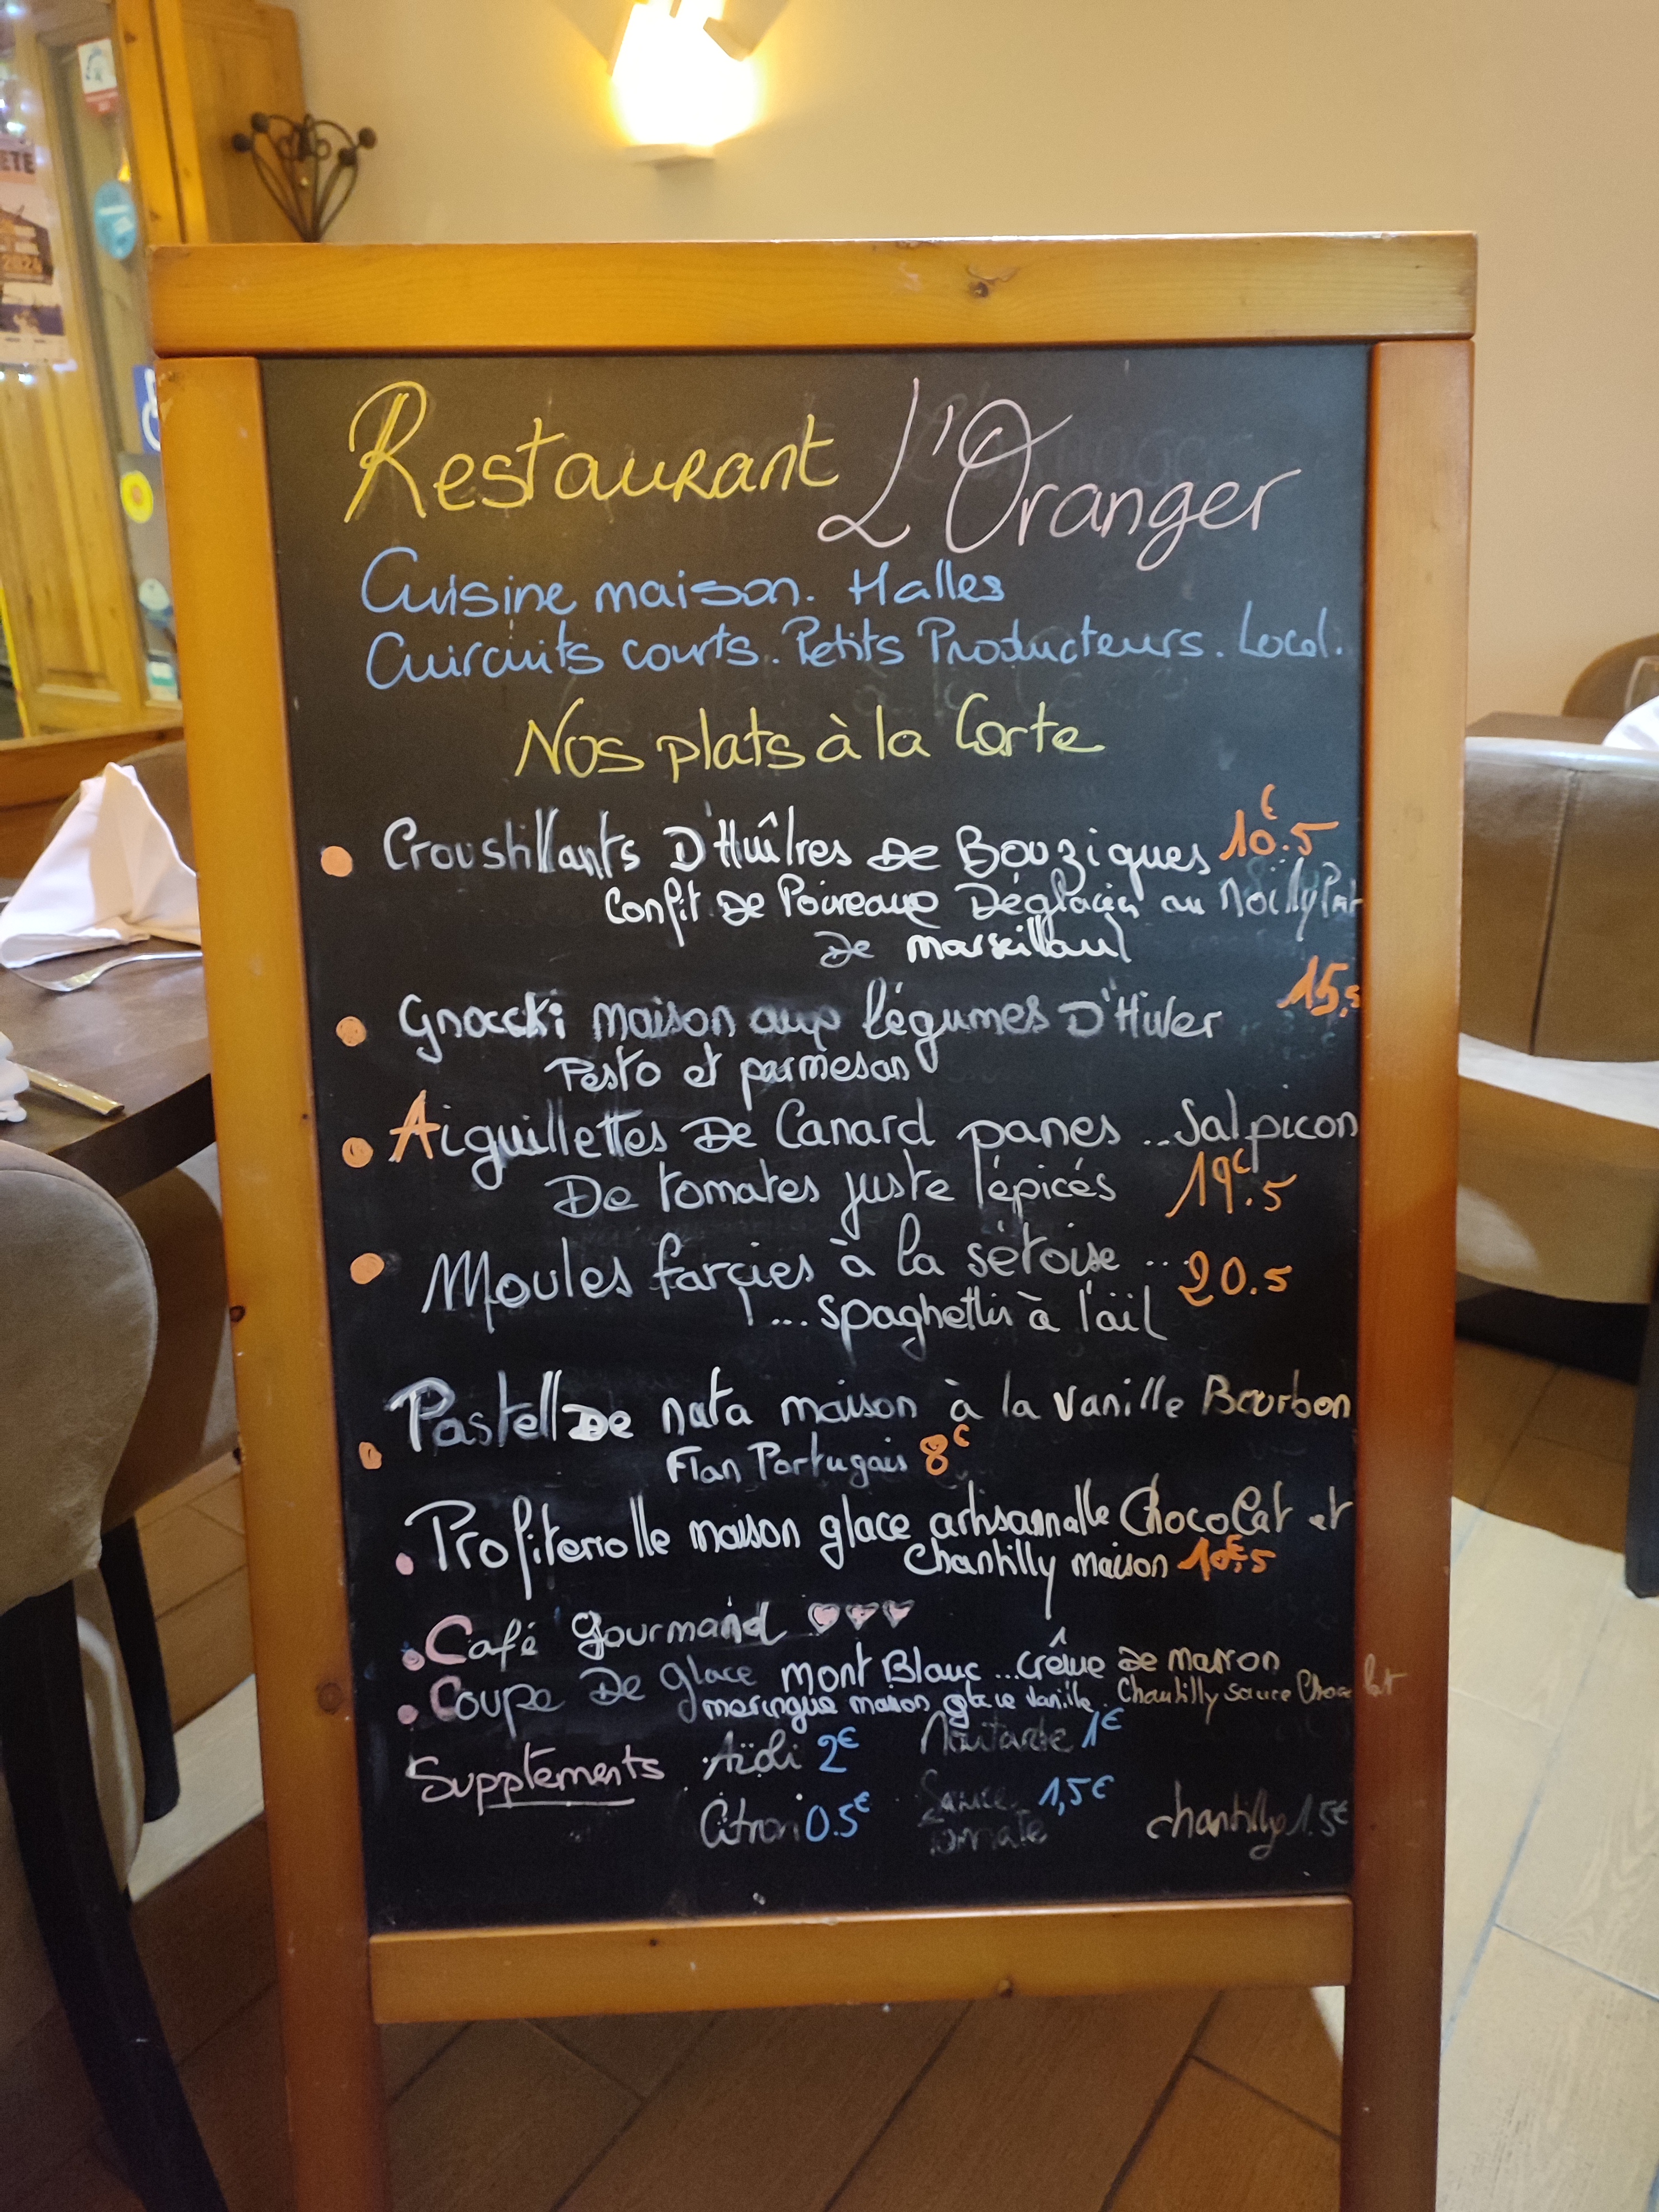 Restaurant L'Oranger
Cuisine maison. Halles
Cuircuits courts. Petits Producteurs. Local.
Nos plats à la Carte
Croustillants D'Huîtres De Bouzigues 10€.5
Confit De Poireaux Déglacés au Noilly Prat
De Marseillan
Gnocchi maison aux légumes D'Hiver 15.5
Pesto et parmesan
Aiguillettes De Canard panes ... Salpicon
De tomates juste épicés 19€.5
Moules farçies à la sétoise ... 20.5
... spaghettis à l'aïl
Pastell De nata maison à la vanille Bourbon
Flan Portugais 8€
Profiterrolle maison glace artisannalle Chocolat et
Chantilly maison 10€,5
Café gourmand ♡♡♡
Coupe De glace Mont Blanc ... crême De marron
meringue maison glace vanille. Chantilly sauce Chocolat
Suppléments Aïoli 2€ Moutarde 1€
Citron 0.5€ Sauce tomate 1,5€ chantilly 1.5€
ETE